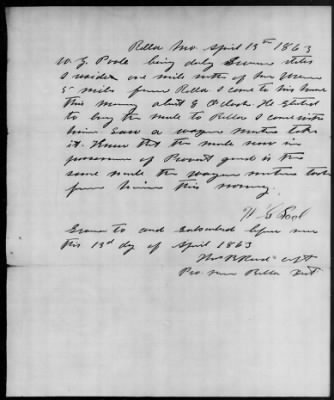 Rolla Mo. April 13th 1863
W. G. Poole being duly sworn states
I reside one mile north of
5 miles from Rolla I come to his house
this morning about 8 O'clock He started
to bring the mule to Rolla I come with
him Saw a wagon master take
it. Know that the mule now in
possession of Provost guard is the
same mule the wagon master took
from him this morning.
W. G. Pool
Sworn to and subscribed before me
this 13th day of April 1863
Capt
Pro. Mar Rolla Dist